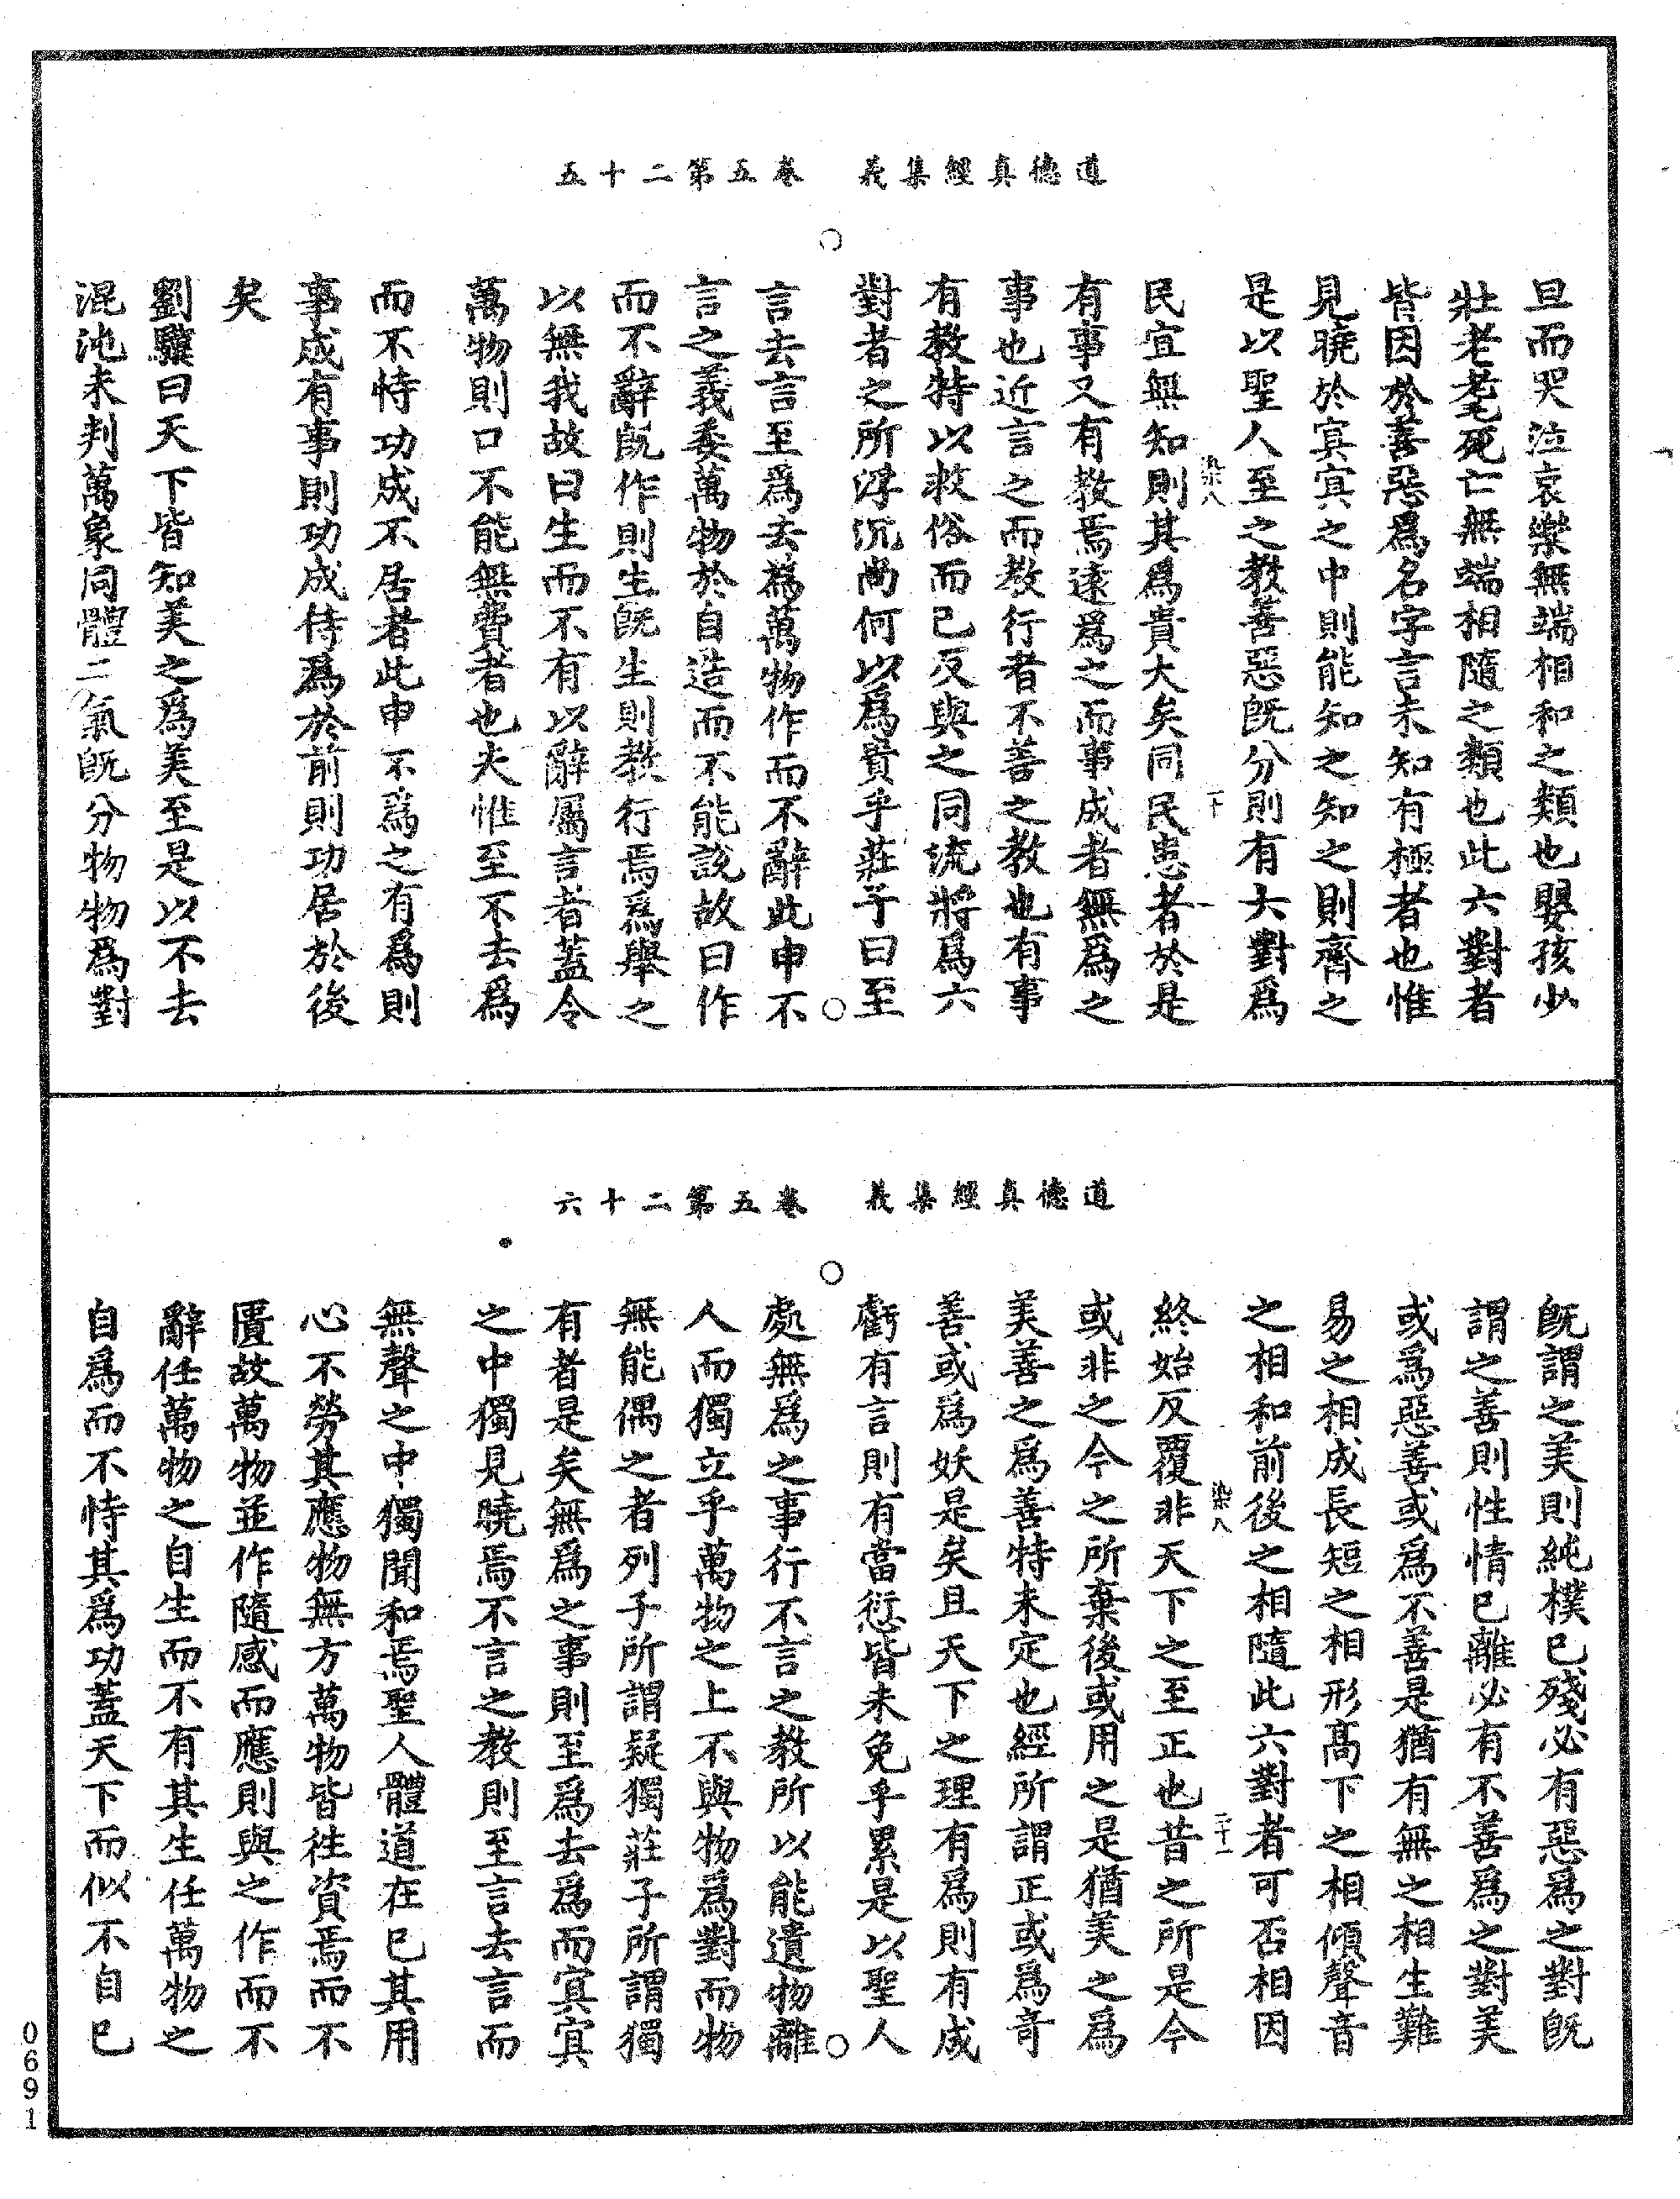 道德真經集義　卷五第二十五
旦而哭泣哀樂無端相和之類也嬰孩少
壯老耄死亡無端相隨之類也此六對者
皆因於善惡爲名字言未知有極者也惟
見曉於冥冥之中則能知之知之則齊之
是以聖人至之教善惡旣分則有大對爲
染八　二十
民宜無知則其爲貴大矣同民患者於是
有事又有教焉遠爲之而事成者無爲之
事也近言之而教行者不善之教也有事
有教特以救俗而已反與之同流將爲六
對者之所浮沉尚何以爲貴乎莊子曰至
言去言至爲去爲萬物作而不辭此申不
言之義委萬物於自造而不能說故曰作
而不辭旣作則生旣生則教行焉爲舉之
以無我故曰生而不有以辭屬言者蓋令
萬物則口不能無費者也夫惟至不去爲
而不恃功成不居者此申不爲之有爲則
事成有事則功成恃爲於前則功居於後
矣
劉驥曰天下皆知美之爲美至是以不去
混沌未判萬象同體二氣旣分物物爲對
道德真經集義　卷五第二十六
旣謂之美則純樸已殘必有惡爲之對旣
謂之善則性情已離必有不善爲之對美
或爲惡善或爲不善是猶有無之相生難
易之相成長短之相形高下之相傾聲音
之相和前後之相隨此六對者可否相因
染八　二十一
終始反覆非天下之至正也昔之所是今
或非之今之所棄後或用之是猶美之爲
美善之爲善特未定也經所謂正或爲奇
善或爲妖是矣且天下之理有爲則有成
虧有言則有當愆皆未免乎累是以聖人
處無爲之事行不言之教所以能遺物離
人而獨立乎萬物之上不與物爲對而物
無能偶之者列子所謂疑獨莊子所謂獨
有者是矣無爲之事則至爲去爲而冥冥
之中獨見曉焉不言之教則至言去言而
無聲之中獨聞和焉聖人體道在已其用
心不勞其應物無方萬物皆徃資焉而不
匱故萬物並作隨感而應則與之作而不
辭任萬物之自生而不有其生任萬物之
自爲而不恃其爲功蓋天下而似不自已
0691